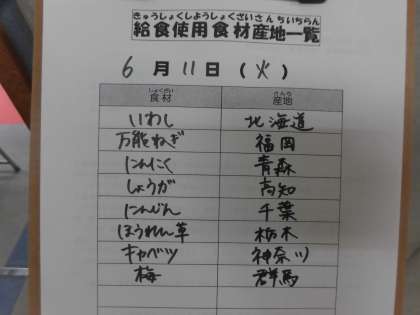 きゅうしょくしようしょくざいさんちいちらん
給食使用食材産地一覧
6月11日(火)
しょくざい さんち
食材 産地
いわし 北海道
万能ねぎ 福岡
にんにく 青森
しょうが 高知
にんじん 千葉
ほうれん草 栃木
キャベツ 神奈川
梅 群馬